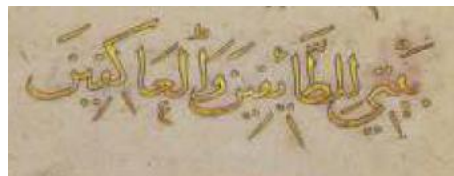 بَيْتِيَ لِلطَّائِفِينَ وَالْعَاكِفِينَ